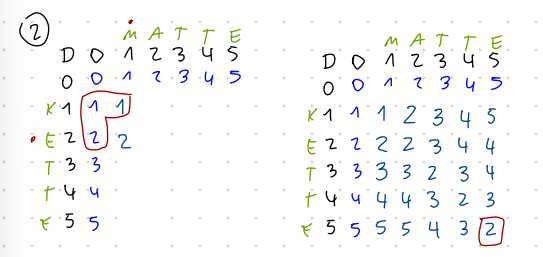 2
M A T T E
D 0 1 2 3 4 5
0 0 1 2 3 4 5
K 1 1 1
E 2 2 2
T 3 3
T 4 4
E 5 5
M A T T E
D 0 1 2 3 4 5
0 0 1 2 3 4 5
K 1 1 1 2 3 4 5
E 2 2 2 2 3 4 4
T 3 3 3 3 2 3 4
T 4 4 4 4 3 2 3
E 5 5 5 5 4 3 2